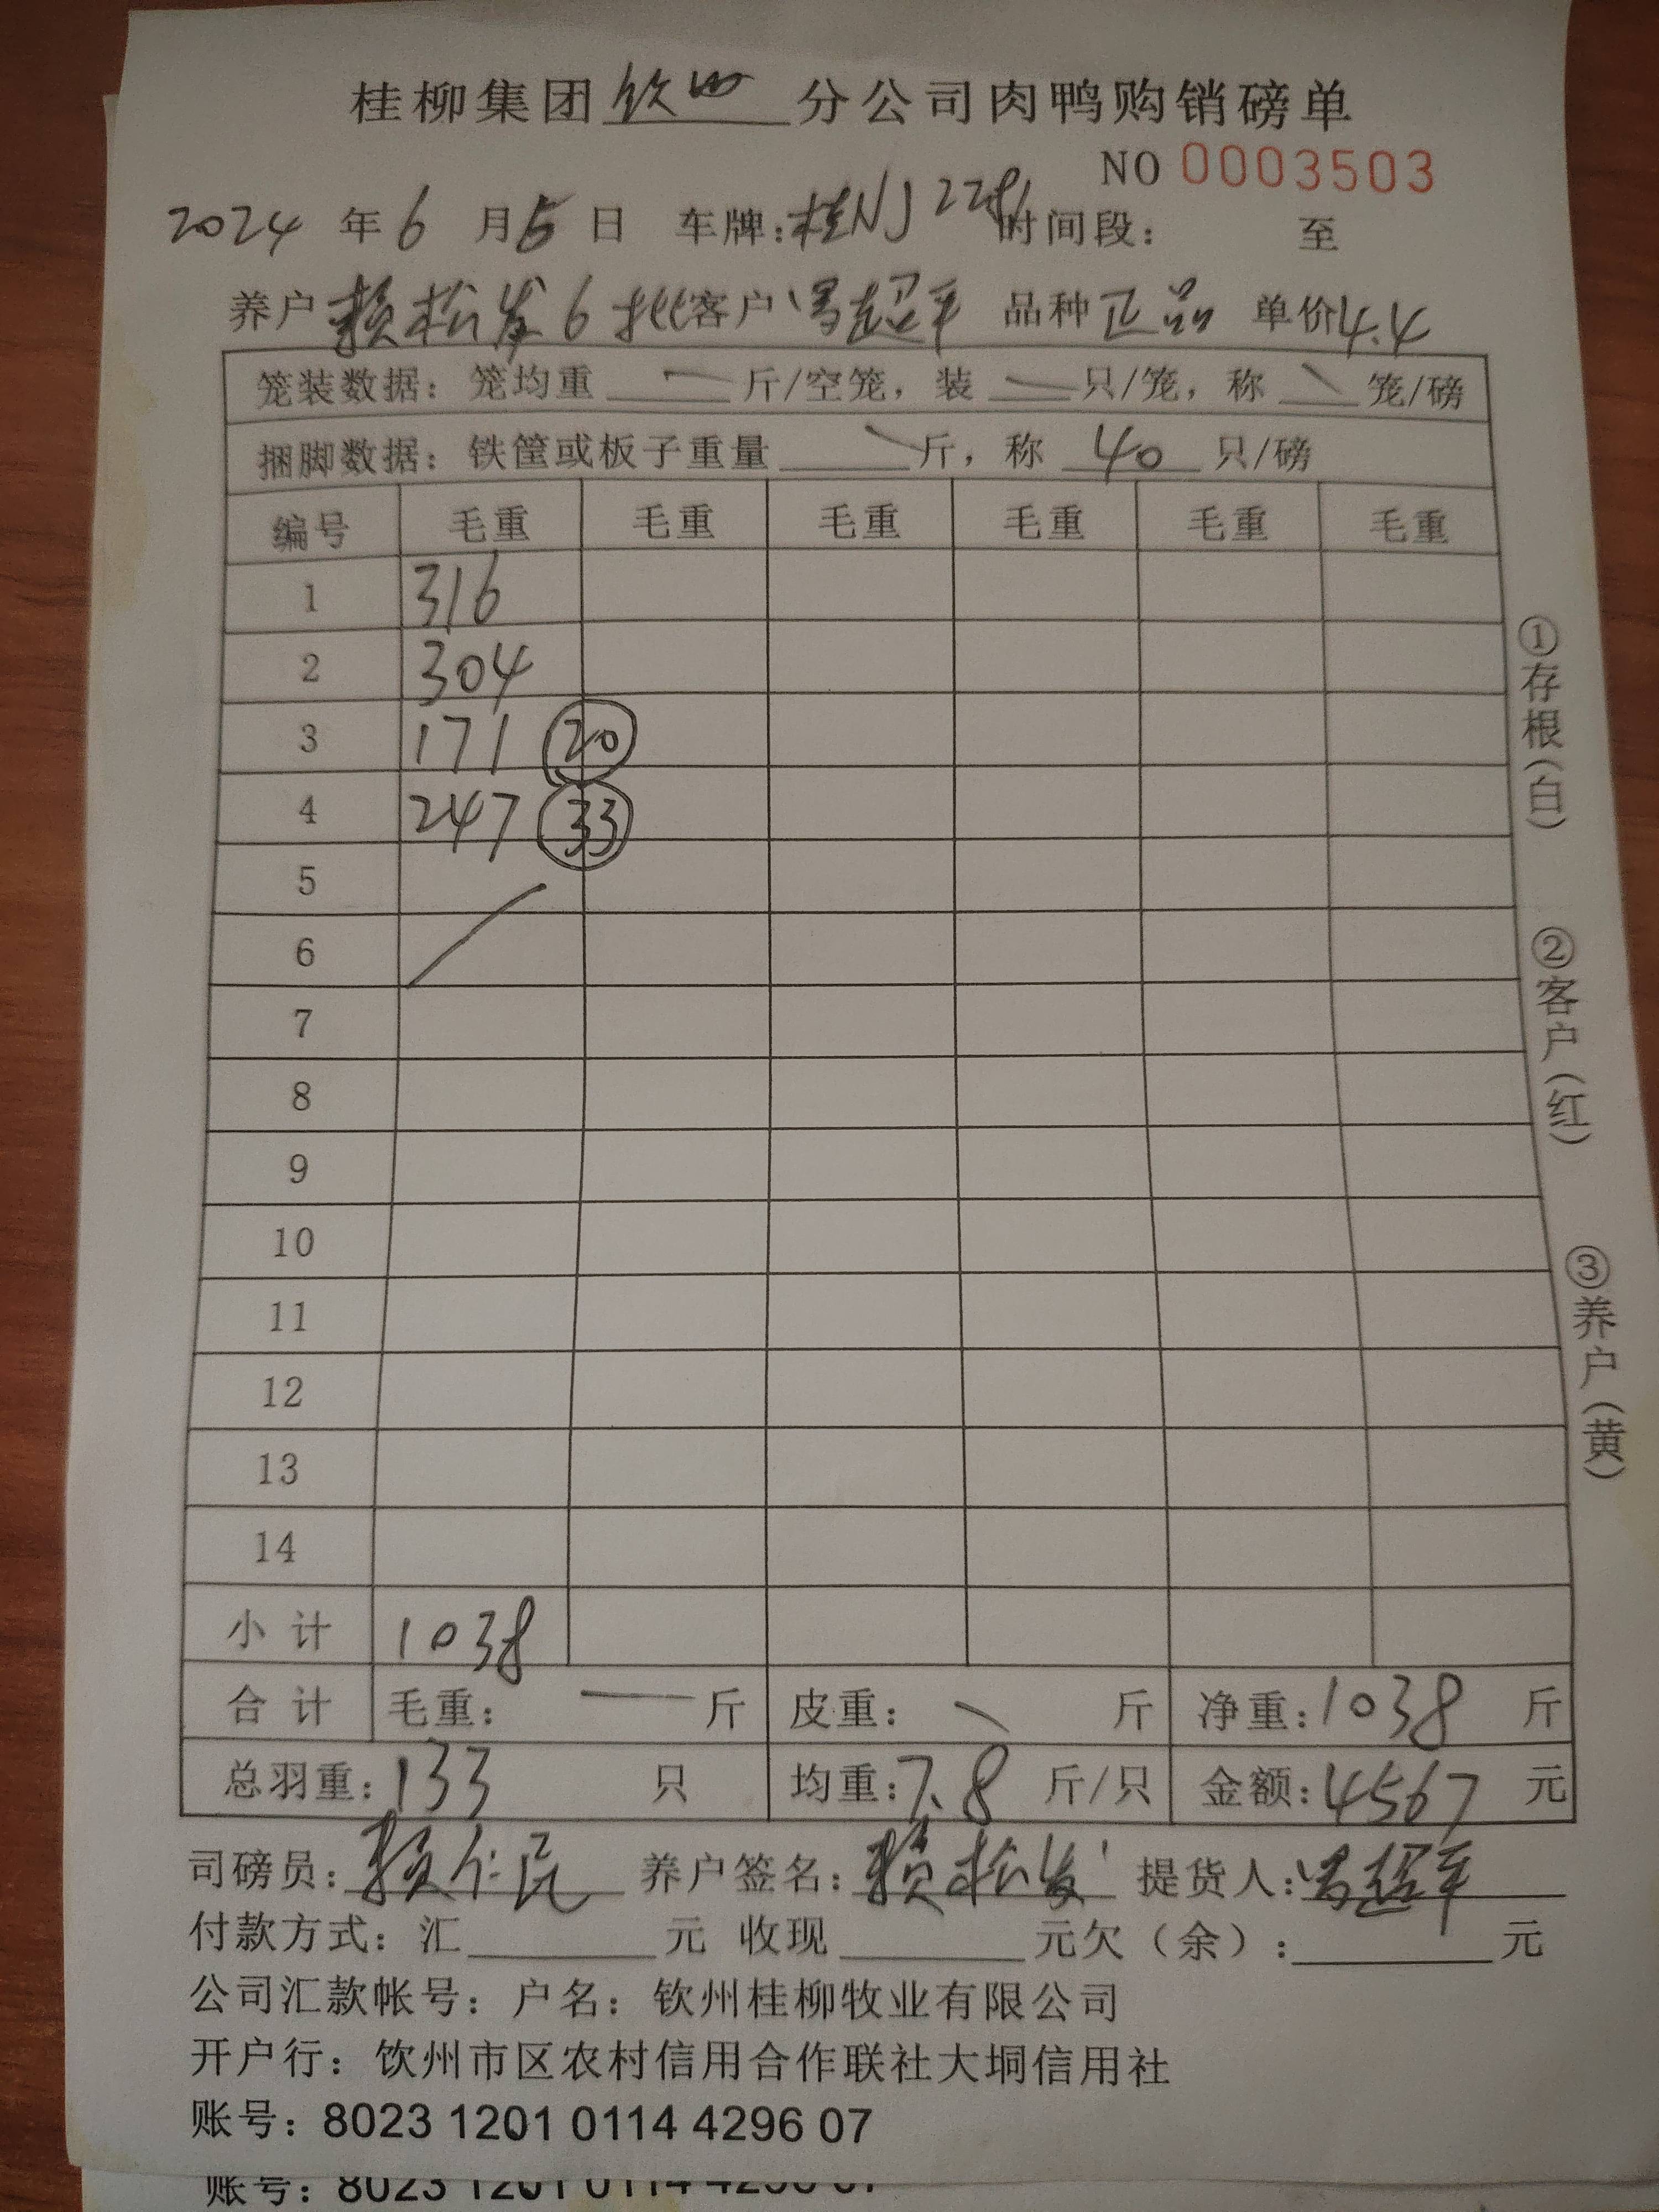 桂柳集团钦四分公司肉鸭购销磅单
NO 0003503
2024年6月5日 车牌:桂NJ 时间段: 至
养户赖松发6批客户冯超平 品种正品 单价4.4
笼装数据: 笼均重 一 斤/空笼, 装 一 只/笼, 称 一 笼/磅
捆脚数据: 铁筐或板子重量 一 斤, 称 40 只/磅
编号 毛重 毛重 毛重 毛重 毛重 毛重
1 316
2 304
3 171 20
4 247 33
5
6
7
8
9
10
11
12
13
14
小计 1038
合计 毛重: 一 斤 皮重: 一 斤 净重:1038 斤
总羽重:133 只 均重:7.8 斤/只 金额:4567 元
司磅员:赖仁民 养户签名:赖松发 提货人:冯超平
付款方式: 汇 元 收现 元欠(余): 元
公司汇款帐号: 户名: 钦州桂柳牧业有限公司
开户行: 钦州市区农村信用合作联社大垌信用社
账号: 8023 1201 0114 4296 07
账号: 8023 1201 0114 4296 07
①存根(白)
②客户(红)
③养户(黄)